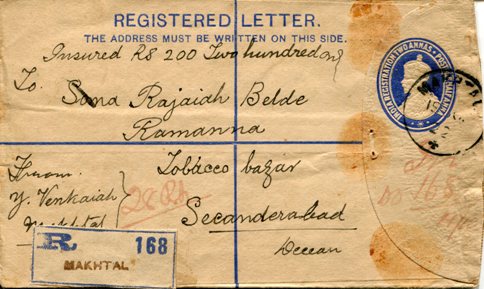 REGISTERED LETTER.
THE ADDRESS MUST BE WRITTEN ON THIS SIDE.
Insured RS 200 Two hundred only
To.
Sona Rajaiah Belde
Ramanna
Tobacco bazar
Secanderabad
Deccan
From.
Y. Venkaiah
Makhtal
R 168
MAKHTAL
INDIA REGISTRATION TWO ANNAS
MAKHTAL